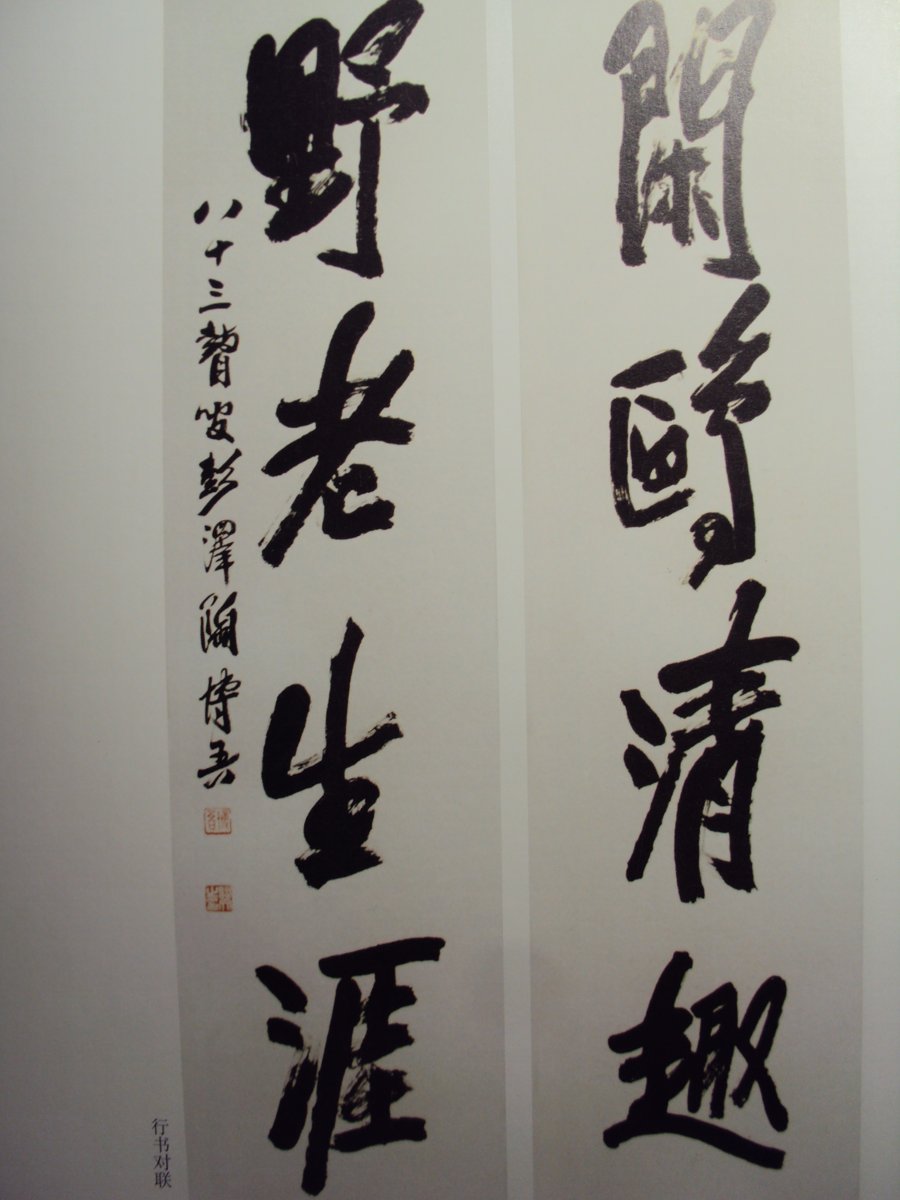 閑鷗清趣
野老生涯
八十三瞽叟彭澤陶博吾
行书对联